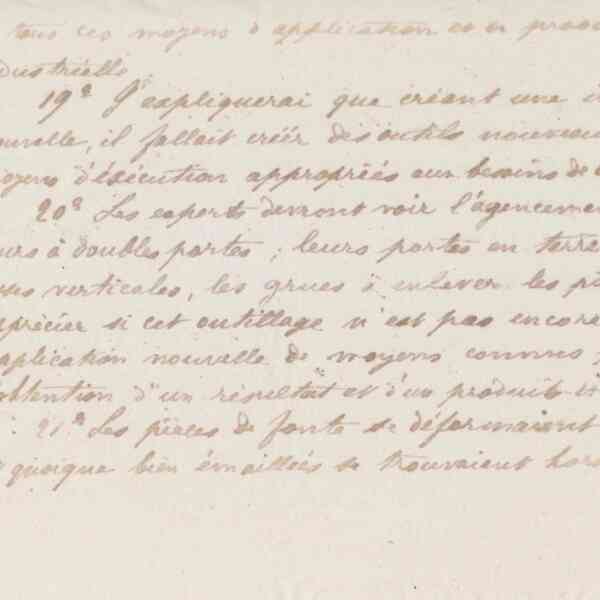 tous ces moyens d'application et de produ
dustrielle
19° J'expliquerai que créant une i
ouvelle, il fallait créer des outils nouveau
oyens d'éxécution appropriés aux besoins de
20° Les experts devront voir l'agencemen
urs à doubles portes ; leurs portes en terre
verticales, les grues à enlever les pi
pprécier si cet outillage n'est pas encore
application nouvelle de moyens connus,
obtention d'un résultat et d'un produit i
21° Les pièces de fonte se déformaient
quoique bien émaillées se trouvaient hors